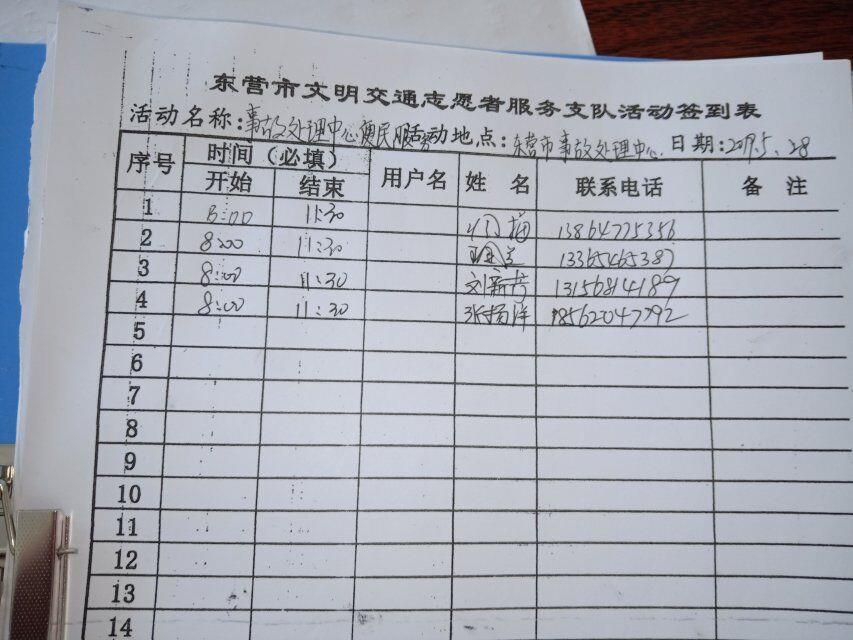 东营市文明交通志愿者服务支队活动签到表
活动名称:事故处理中心便民服务活动地点:东营市事故处理中心 日期:2019.5.28
序号 时间(必填) 用户名 姓 名 联系电话 备 注
开始 结束
1 8:00 11:30 13864775356
2 8:00 11:30 13365465387
3 8:00 11:30 刘新芳 13156814189
4 8:00 11:30 张扬洋 18562047792
5
6
7
8
9
10
11
12
13
14